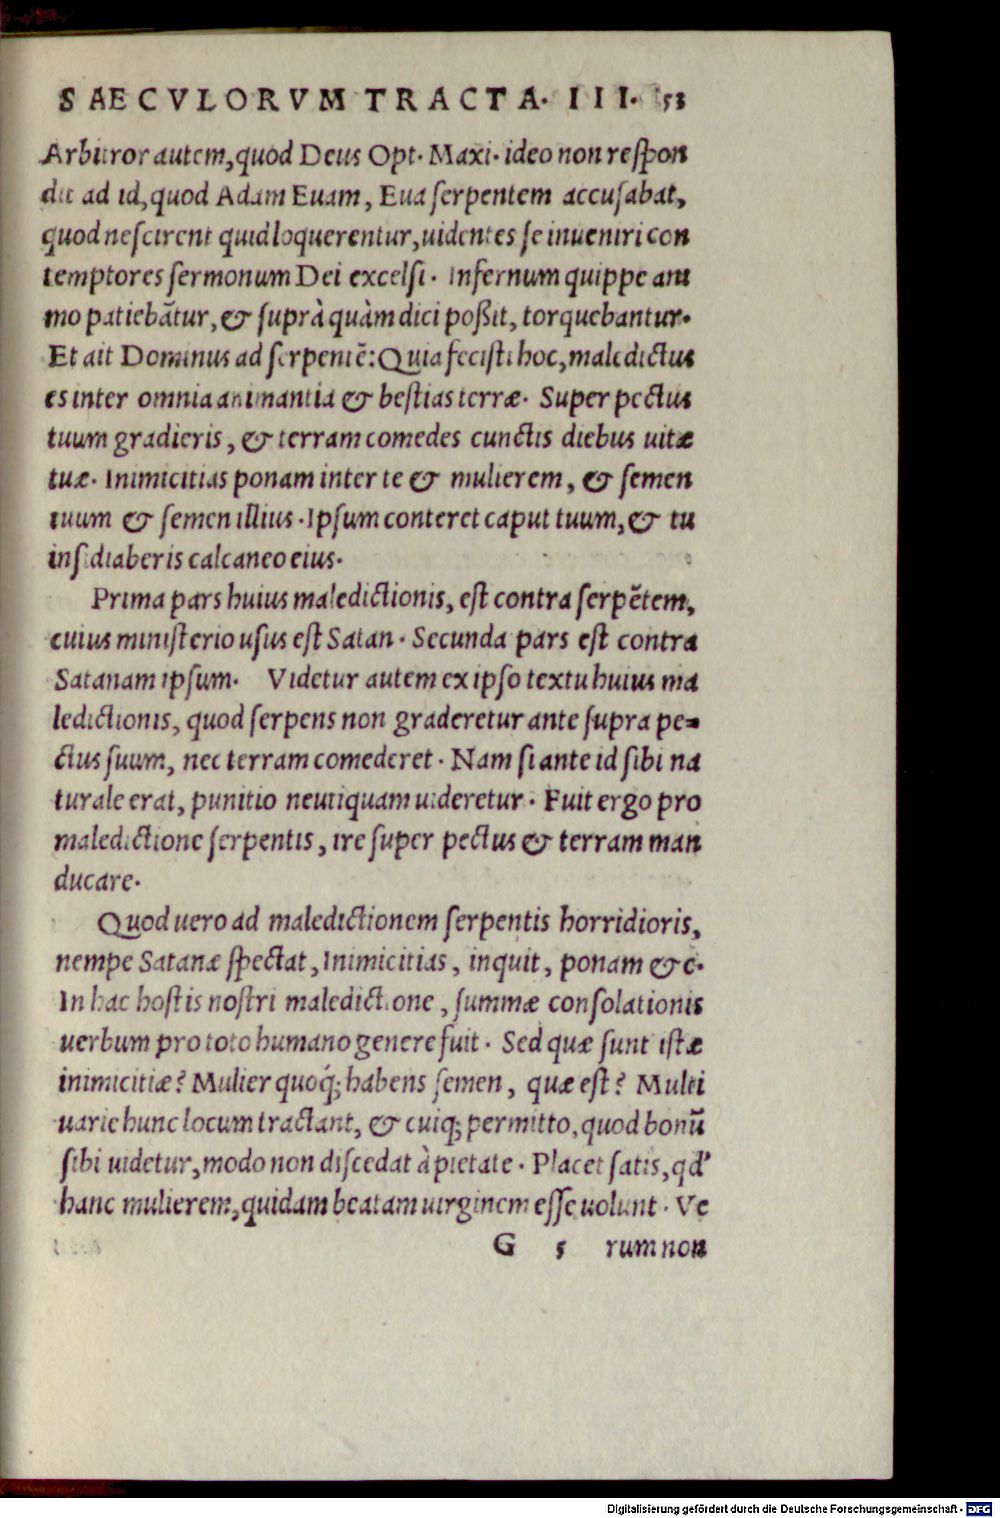 SAECVLORVM TRACTA. III. 53
Arbitror autem, quod Deus Opt. Maxi. ideo non respon
dit ad id, quod Adam Euam, Eua serpentem accusabat,
quod nescirent quid loquerentur, uidentes se inueniri con
temptores sermonum Dei excelsi. Infernum quippe ani
mo patiebãtur, & suprà quàm dici poßit, torquebantur.
Et ait Dominus ad serpentẽ: Quia fecisti hoc, maledictus
es inter omnia animantia & bestias terræ. Super pectus
tuum gradieris, & terram comedes cunctis diebus uitæ
tuæ. Inimicitias ponam inter te & mulierem, & semen
tuum & semen illius. Ipsum conteret caput tuum, & tu
insidiaberis calcaneo eius.
Prima pars huius maledictionis, est contra serpẽtem,
cuius ministerio usus est Satan. Secunda pars est contra
Satanam ipsum. Videtur autem ex ipso textu huius ma
ledictionis, quod serpens non graderetur ante supra pe=
ctus suum, nec terram comederet. Nam si ante id sibi na
turale erat, punitio neutiquam uideretur. Fuit ergo pro
maledictione serpentis, ire super pectus & terram man
ducare.
Quod uero ad maledictionem serpentis horridioris,
nempe Satanæ spectat, Inimicitias, inquit, ponam &c.
In hac hostis nostri maledictione, summæ consolationis
uerbum pro toto humano genere fuit. Sed quæ sunt istæ
inimicitiæ? Mulier quoq́; habens semen, quæ est? Multi
uarie hunc locum tractant, & cuiq; permitto, quod bonũ
sibi uidetur, modo non discedat à pietate. Placet satis, qd'
hanc mulierem, quidam beatam uirginem esse uolunt. Ve
G 5 rum non
Digitalisierung gefördert durch die Deutsche Forschungsgemeinschaft - DFG